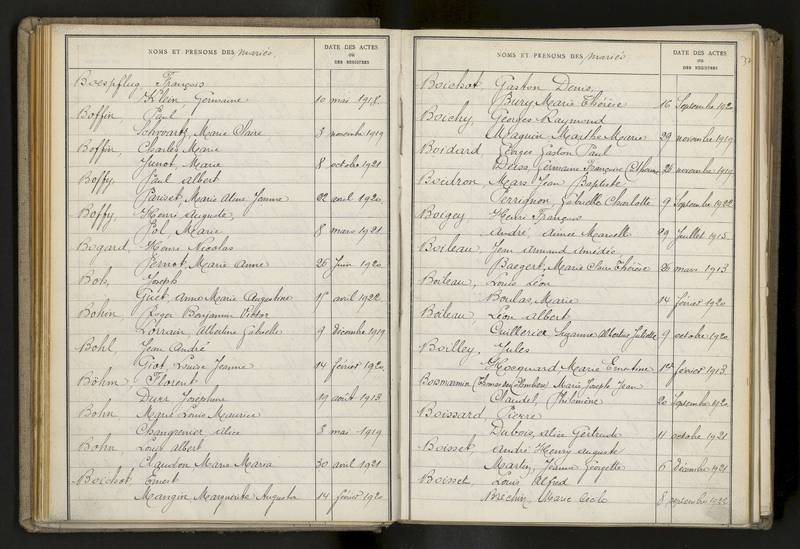 NOMS ET PRÉNOMS DES mariés
DATE DES ACTES
OU
DES REGISTRES
Boespflug François
Klein Germaine 10 mai 1918.
Boffin Paul
Schvartz, Marie Claire 3 novembre 1919
Boffin, Charles Marie
Junot, Marie 8 octobre 1921
Boffy, Paul Albert
Pariset, Marie Aline Jeanne 22 avril 1920
Boffy, Henri Auguste,
Fol, Marie 8 mars 1921.
Bogard, Henri Nicolas
Pernot, Marie Anne 26 Juin 1920
Joseph
Marie Augustine avril 1922.
Bohin, Roger Benjamin Victor
Lorrain, Albertine Gabrielle 9 décembre 1919
Bohl, Jean André
Giot, Louise Jeanne 14 février 1920.
Böhm, Florent
Durr, Joséphine 19 août 1913
Bohn Louis Maurice
Changrenier Alice 3 mai 1919
Bohn, Louis Albert
Claudon Marie Maria 30 avril 1921
Boichot, Ernest
Mangin, Marguerite Augusta 14 février 1920
NOMS ET PRÉNOMS DES mariés
DATE DES ACTES
OU
DES REGISTRES
37
Boichot, Gaston Denis,
Bury, Marie Thérèse 16 Septembre 1920
Boichy, Georges Raymond
Maguin Marthe Marie 29 novembre 1919
Boidard Georges Gaston Paul
Deiss, Germaine Françoise novembre 1919
Boidron, Mars Jean Baptiste
Perrignon, Gabrielle Charlotte 9 Septembre 1922
Boigey Henri François
André, Aimée Marcelle 29 Juillet 1915
Boileau, Jean Armand Amédée
Baegert, Marie Claire Thérèse 26 mars 1913.
Boileau, Louis Léon
Boulas, Marie 14 février 1920
Boileau, Léon Albert,
Cuillerier, Suzanne Albertine Juliette 9 octobre 1920
Boilley, Jules
Hocquard Marie Ernestine 1er février 1913.
Boismarmin Marie Joseph Jean
Claudel, Philomène 20 Septembre 1920
Boissard, Pierre
Dubois, Alice Gertrude 11 octobre 1921
Boisset, André Henry Auguste
Martin, Jeanne Georgette 6 décembre 1921
Boisset, Louis Alfred
Bréchin, Marie Cécile 8 septembre 1922